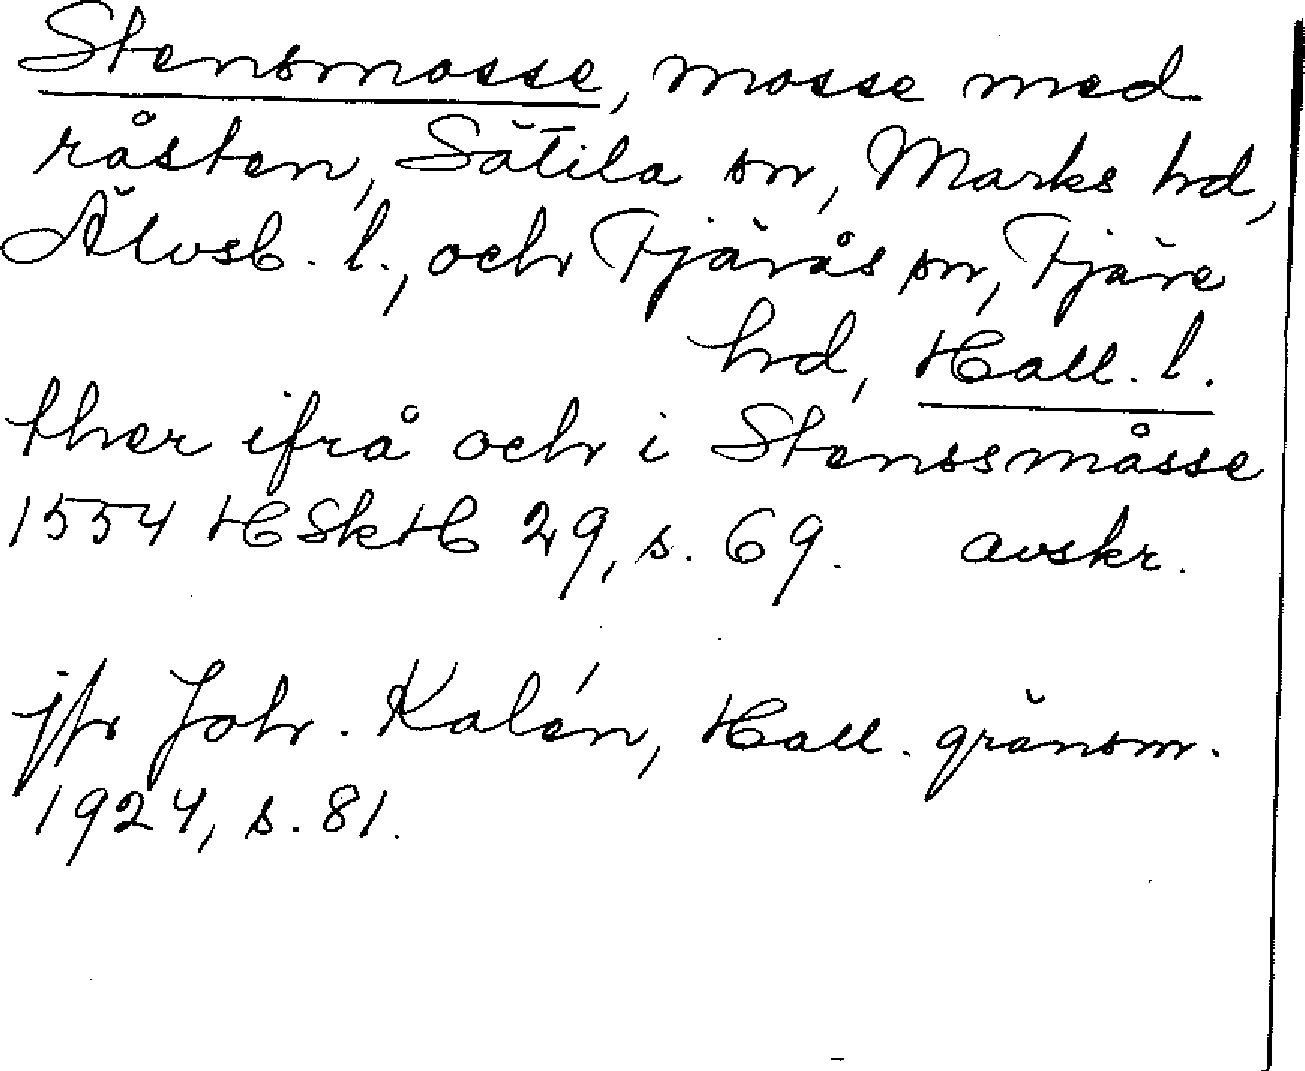 Stensmosse, mosse med
råsten, Sätila sn, Marks hd,
Älvsb. l., och Fjärås sn, Fjäre
hd, Hall. l.
ther ifrå och i Stenssmåsse
1554 HSkH 29, s. 69. avskr.
jfr Joh. Kalén, Hall. gränsm.
1924, s. 81.